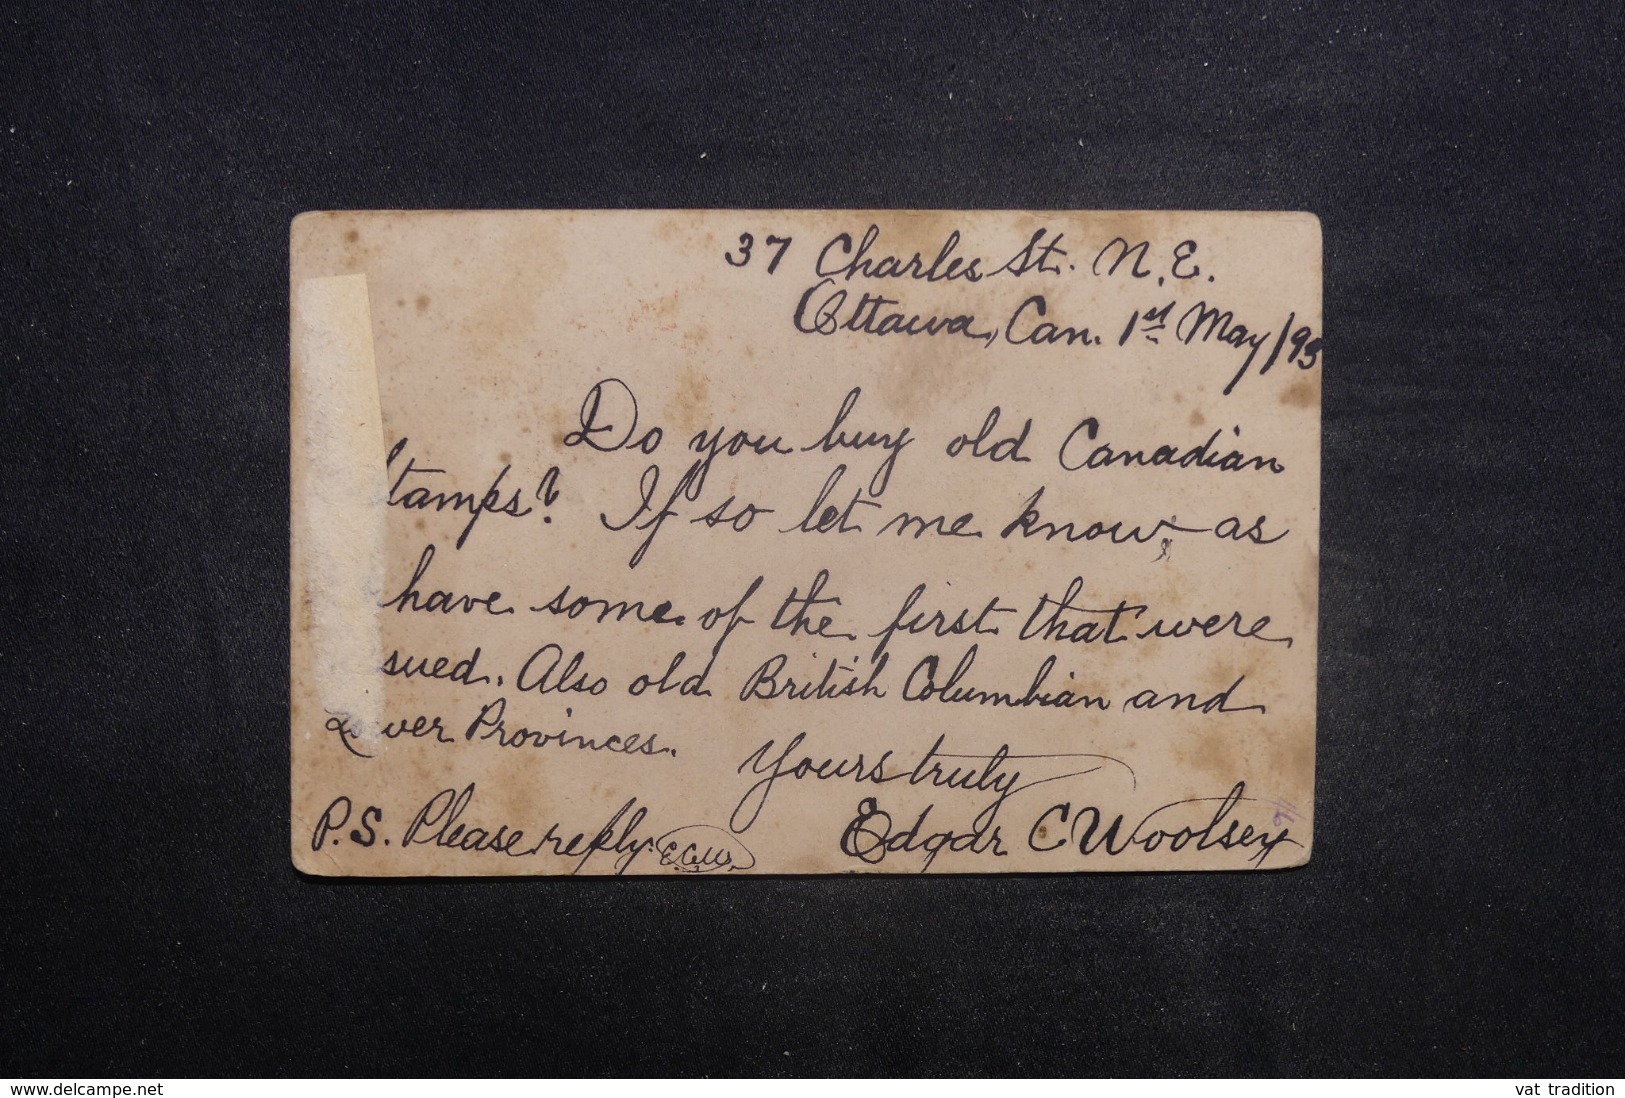 37 Charles St. N.E.
Ottawa, Can. 1st May/95
Do you buy old Canadian
tamps? If so let me know, as
have some of the first that were
sued. Also old British Columbian and
Lower Provinces.
Yours truly
P.S. Please reply. E.C.W. Edgar C Woolsey
www.delcampe.net
vat tradition